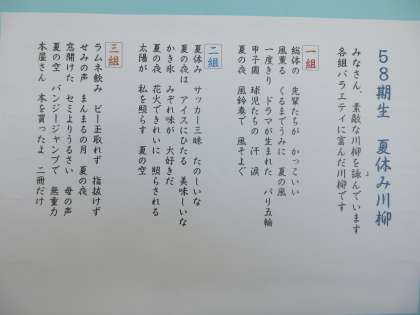 58期生 夏休み川柳
みなさん、素敵な川柳を詠んでいます
各組バラエティに富んだ川柳です
一組
総体の 先輩たちが かっこいい
風薫る くるまでうみに 夏の風
一度きり ドラマが生まれた パリ五輪
甲子園 球児たちの 汗 涙
夏の夜 風鈴奏で 風そよぐ
二組
夏休み サッカー三昧 たのしいな
夏の夜は アイスにひたる 美味しいな
かき氷 みぞれ味が 大好きだ
夏の夜 花火できれいに 照らされる
太陽が 私を照らす 夏の空
三組
ラムネ飲み ビー玉取れず 指抜けず
せみの声 まんまるの月 夏の夜
窓開けた セミよりうるさい 母の声
夏の空 バンジージャンプで 無重力
本屋さん 本を買ったよ 二冊だけ